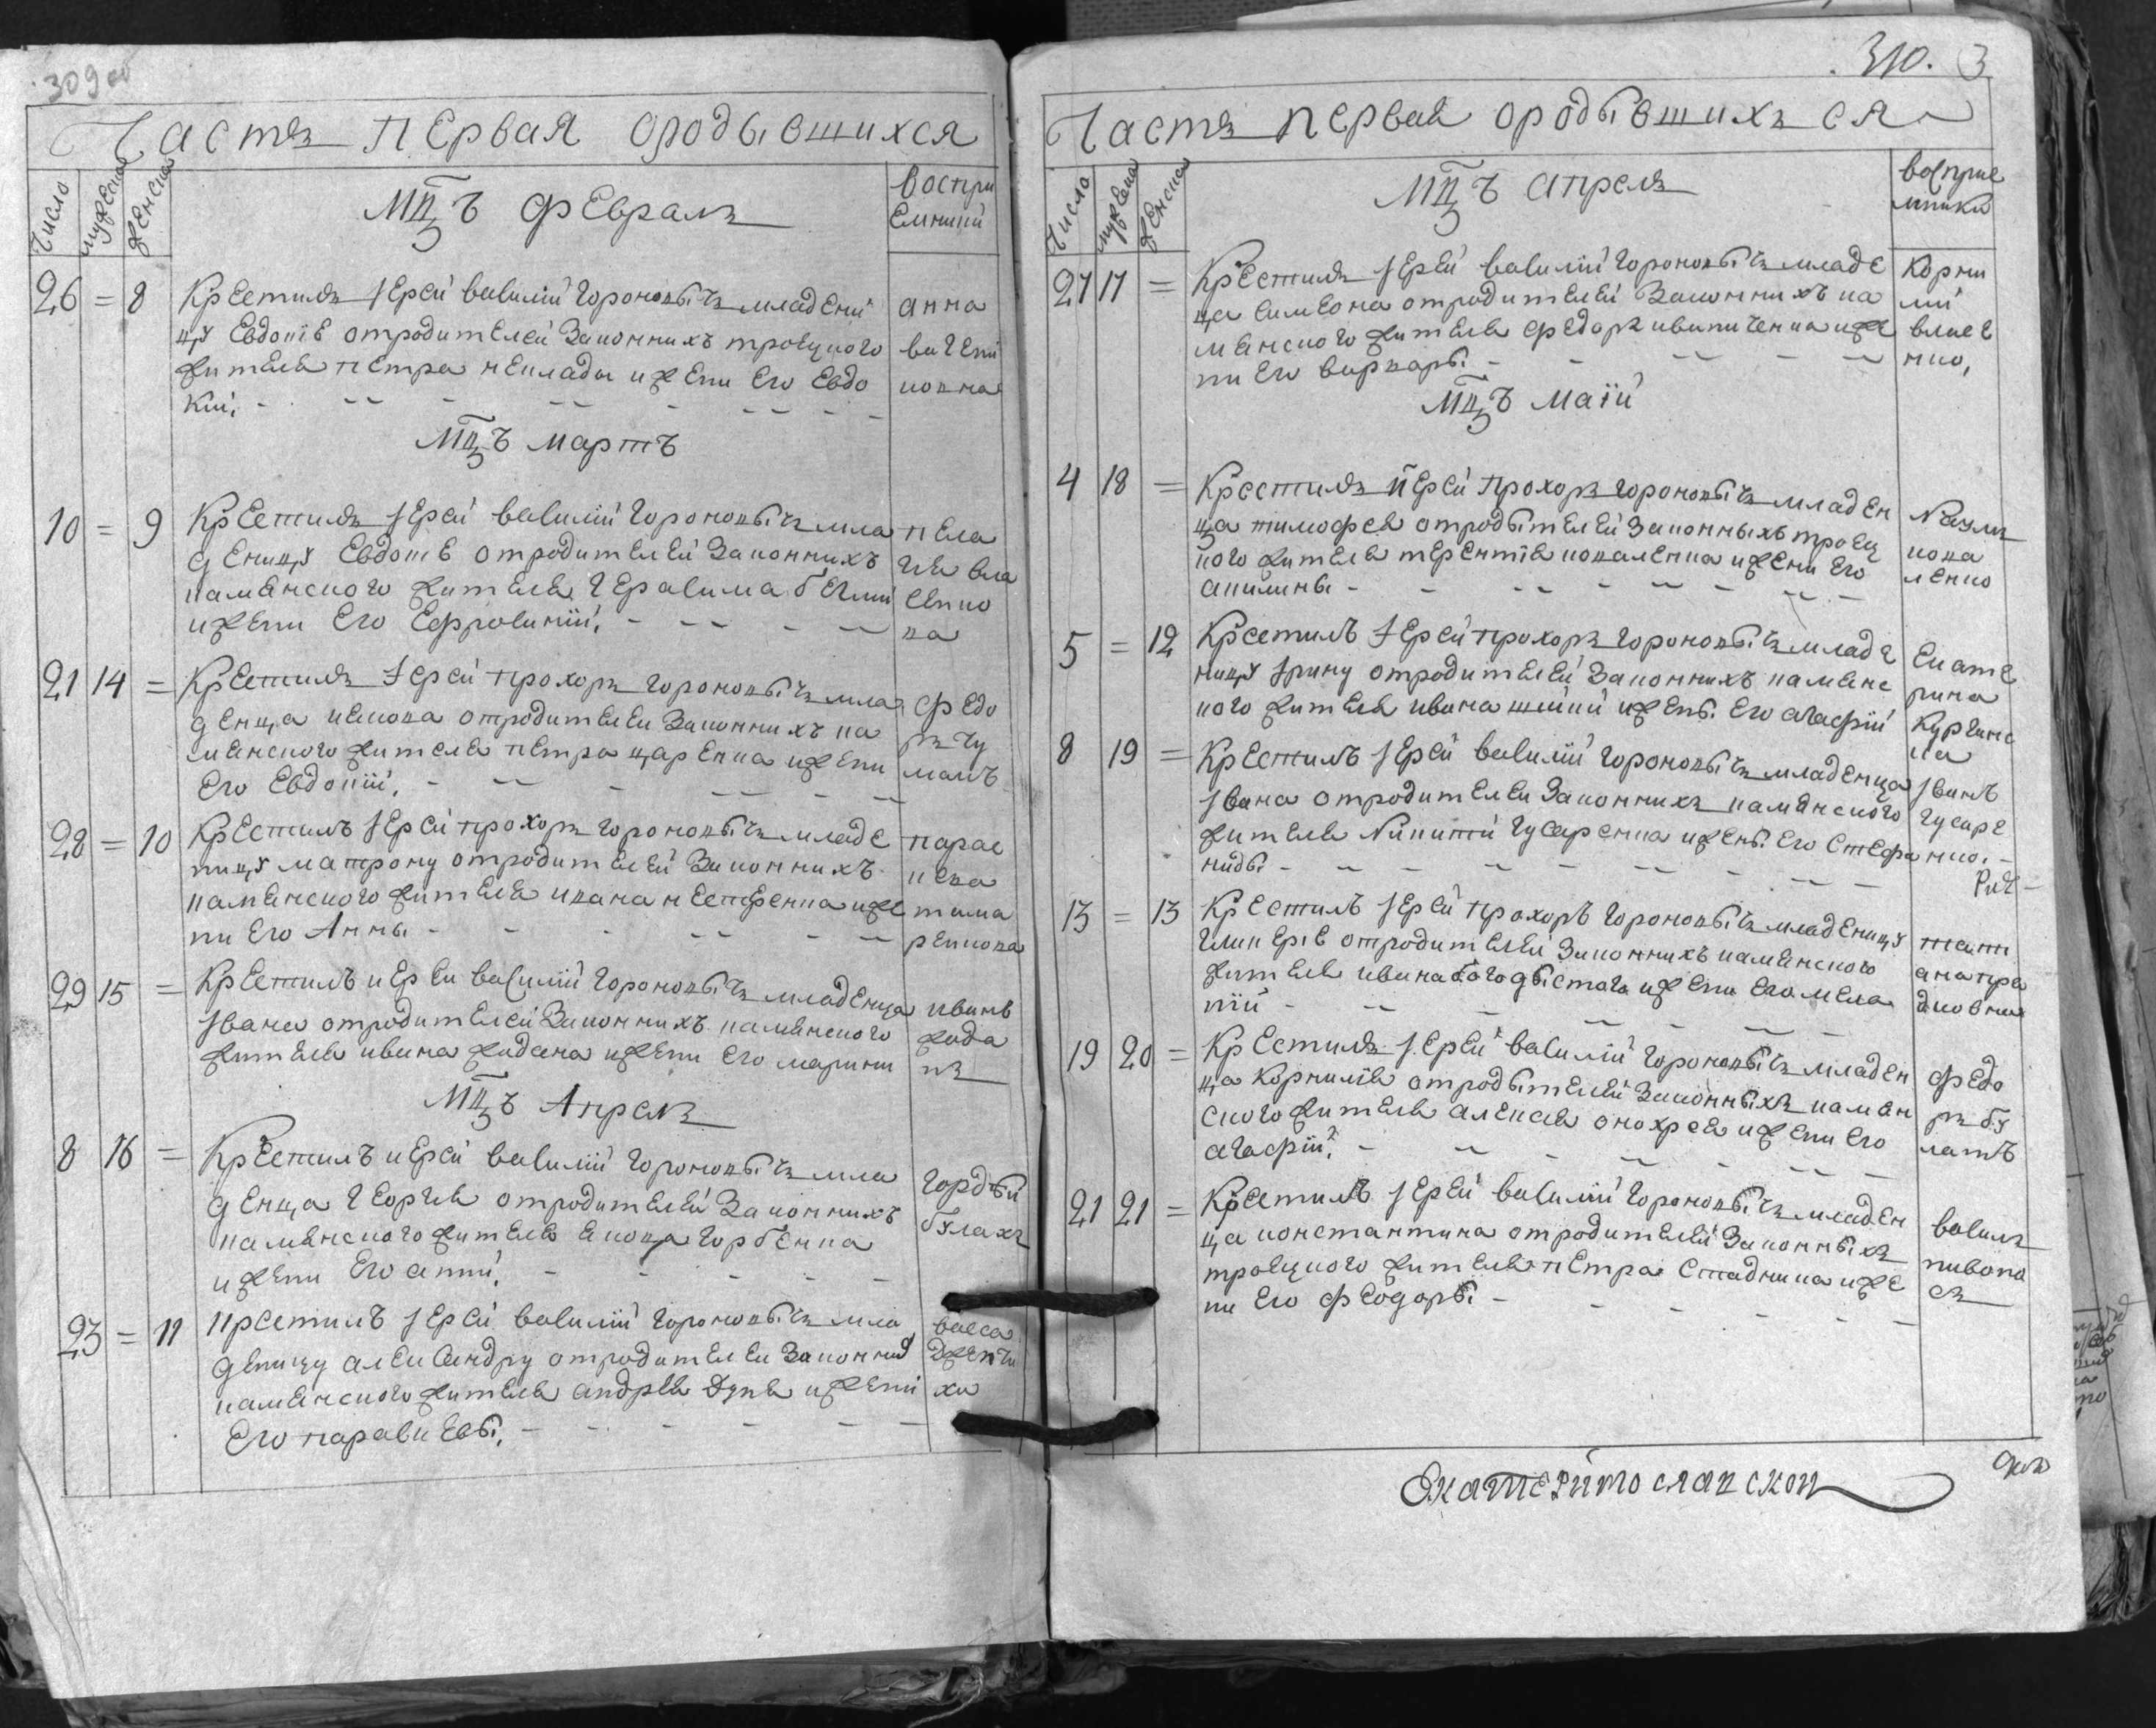 309 об
Часть первая о родывшихся
Число мужеска женска
Мцъ февраль
воспри
емники
26 = 8 Крестилъ іерей василій гороновычъ младени
цу Евдокію от родителей законнихъ троецкого
жителя петра неклады и жени его Евдо
кіи,
анна
Мцъ мартъ
10 = 9 Крестилъ іерей василій гороновычъ мла
деницу Евдокію от родителей законнихъ
каменского жителя герасима
и жени его Ефросиніи,
пела
гия вла
сенко
ва
21 14 = Крестилъ іерей прохоръ гороновычъ мла
денца иякова от родителей законнихъ ка
менского жителя петра царенка и жени
его Евдокіи,
федо
ръ чу
макъ
28 = 10 Крестилъ іерей прохоръ гороновычъ младе
ницу матрону от родителей законнихъ
каменского жителя ивана нестеренка и же
ни его Анны
парас
кева
тима
ренкова
29 15 = Крестилъ иерей василій гороновычъ младенца
івана от родителей законнихъ каменского
жителя ивана жадана и жени его марини
иванъ
жада
нъ
Мцъ Апрель
8 16 = Крестилъ иерей василій гороновычъ мла
денца георгия от родителей законнихъ
каменского жителя якова горбенка
и жени его анни,
гордѣй
булахъ
23 = 11 Крестилъ іерей василій гороновычъ мла
деницу александру от родителей законних
каменского жителя андрея дупы и жени
его парасковы,
васса
310. 3
Часть первая о родывшихъся
Число мужска женска
Мцъ апреля
восприе
мники
27 17 = Крестилъ іерей василій гороновычъ младе
нца симеона от родителей законнихъ ка
менского жителя федора ивниченка и же
ни его варвары
Корни
лій
власе
нко,
Мцъ маій
4 18 = Крестилъ іерей прохоръ гороновычъ младен
ца тимофея от родытелей законныхъ троец
кого жителя терентія коваленка и жени его
акилины
Павлъ
кова
ленко
5 = 12 Крестилъ іерей прохоръ гороновычъ младе
ницу ірину от родителей законнихъ каменс
кого жителя ивана шійки и жены его агафіи
Екате
рина
8 19 = Крестилъ іерей василій гороновычъ младенца
івана от родителей законнихъ каменского
жителя Никити гусаренка и жены его Стефа
ниды
іванъ
гусаре
нко.
13 = 13 Крестилъ іерей прохоръ гороновычъ младеницу
гликерію от родителей законнихъ каменского
жителя ивана и жени его мела
ніи
тати
ана
19 20 = Крестилъ іерей василій гороновычъ младен
ца Корнилія от родытелей законныхъ камен
ского жителя алексея онохрея и жени его
агафіи,
федо
ръ бу
латъ
21 21 = Крестилъ іерей василій гороновычъ младен
ца константина от родителей законныхъ
троецкого жителя петра Стадника и же
ни его феодоры
василь
пивова
ръ
Екатеринославской